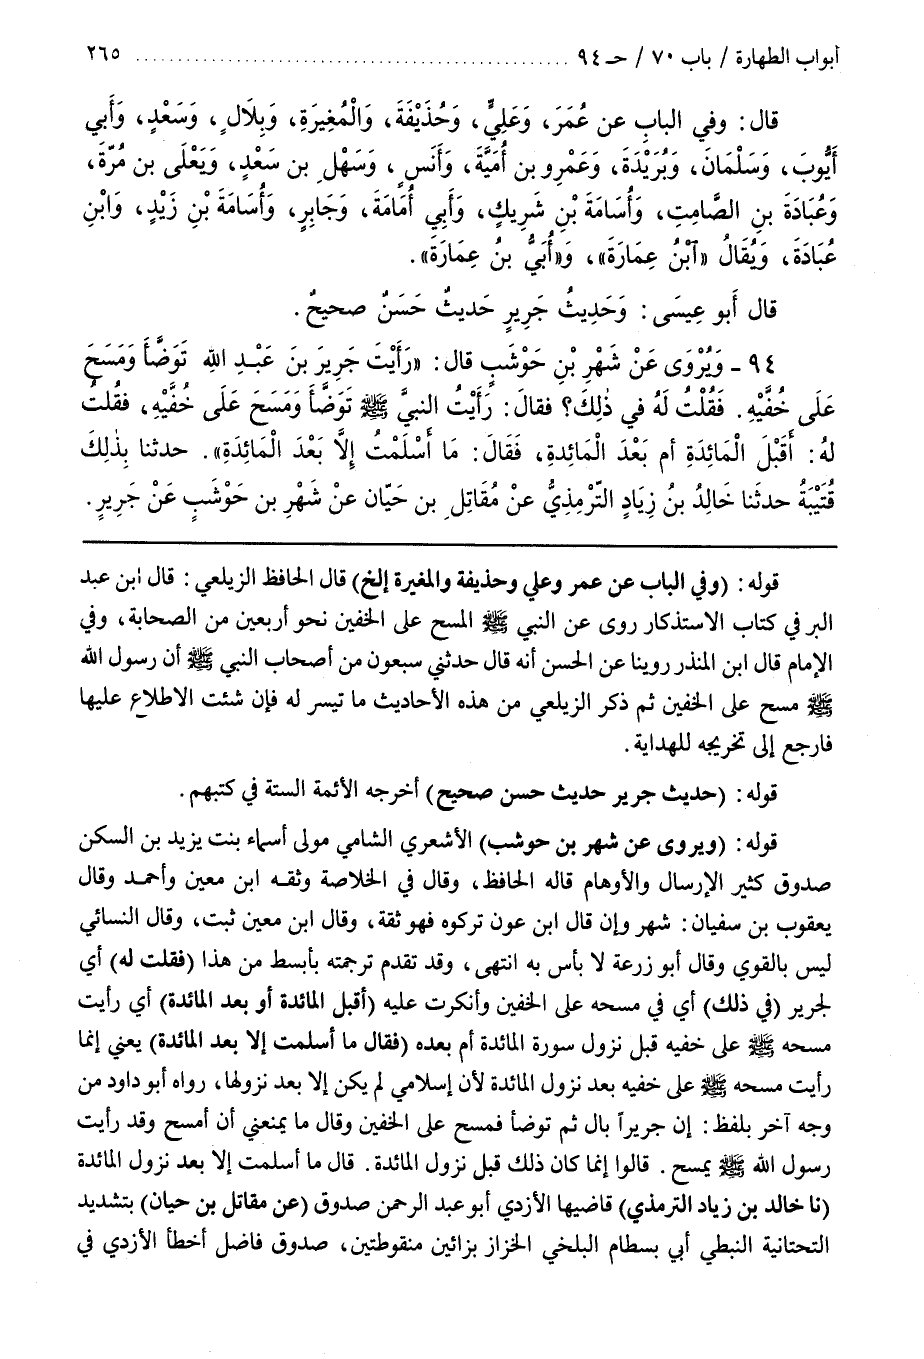 أبواب الطهارة / باب ٧٠ / حـ ٩٤ ..................................................... ٢٦٥
قال: وفي البابِ عن عُمَرَ، وَعَلِيٍّ، وَحُذَيْفَةَ، وَالْمُغِيرَةِ، وَبِلَالٍ، وَسَعْدٍ، وَأَبي
أَيُّوبَ، وَسَلْمَانَ، وَبُرَيْدَةَ، وَعَمْرِو بن أُمَيَّةَ، وَأَنَسٍ، وَسَهْلِ بن سَعْدٍ، وَيَعْلَى بن مُرَّةَ،
وَعُبَادَةَ بنِ الصَّامِتِ، وَأُسَامَةَ بْنِ شَرِيكٍ، وَأَبِي أُمَامَةَ، وَجَابِرٍ، وَأُسَامَةَ بْنِ زَيْدٍ، وَابْنِ
عُبَادَةَ، وَيُقَالُ «ٱبْنُ عِمَارَةَ»، وَ«أُبَيُّ بنُ عِمَارَةَ».
قال أَبو عِيسَى: وَحَدِيثُ جَرِيرٍ حَديثٌ حَسَنٌ صحيحٌ.
٩٤ ـ وَيُرْوَى عَنْ شَهْرِ بْنِ حَوْشَبٍ قال: «رَأَيْتَ جَرِيرَ بنَ عَبْدِ الله تَوَضَّأَ وَمَسَحَ
عَلَى خُفَّيْهِ. فَقُلْتُ لَهُ في ذٰلِكَ؟ فقالَ: رَأَيْتُ النبيَّ ﷺ تَوَضَّأَ وَمَسَحَ عَلَى خُفَّيْهِ، فقُلتُ
لهُ: أَقَبْلَ الْمَائِدَةِ أم بَعْدَ الْمَائِدةِ، فَقَالَ: مَا أَسْلَمْتُ إلَّا بَعْدَ الْمَائِدَةِ». حدثنا بِذٰلِكَ
قُتَيْبَةُ حدثَنا خَالِدُ بنُ زِيَادٍ التِّرْمِذِيُّ عنْ مُقَاتِلِ بن حَيّان عنْ شَهْرِ بن حَوْشَبٍ عَنْ جَرِيرٍ.
قوله: (وفي الباب عن عمر وعلي وحذيفة والمغيرة إلخ) قال الحافظ الزيلعي: قال ابن عبد
البر في كتاب الاستذكار روى عن النبي ﷺ المسح على الخفين نحو أربعين من الصحابة، وفي
الإمام قال ابن المنذر روينا عن الحسن أنه قال حدثني سبعون من أصحاب النبي ﷺ أن رسول الله
ﷺ مسح على الخفين ثم ذكر الزيلعي من هذه الأحاديث ما تيسر له فإن شئت الاطلاع عليها
فارجع إلى تخريجه للهداية.
قوله: (حديث جرير حديث حسن صحيح) أخرجه الأئمة الستة في كتبهم.
قوله: (ويروى عن شهر بن حوشب) الأشعري الشامي مولى أسماء بنت يزيد بن السكن
صدوق كثير الإرسال والأوهام قاله الحافظ، وقال في الخلاصة وثقه ابن معين وأحمد وقال
يعقوب بن سفيان: شهر وإن قال ابن عون تركوه فهو ثقة، وقال ابن معين ثبت، وقال النسائي
ليس بالقوي وقال أبو زرعة لا بأس به انتهى، وقد تقدم ترجمته بأبسط من هذا (فقلت له) أي
لجرير (في ذلك) أي في مسحه على الخفين وأنكرت عليه (أقبل المائدة أو بعد المائدة) أي رأيت
مسحه ﷺ على خفيه قبل نزول سورة المائدة أم بعده (فقال ما أسلمت إلا بعد المائدة) يعني إنما
رأيت مسحه ﷺ على خفيه بعد نزول المائدة لأن إسلامي لم يكن إلا بعد نزولها، رواه أبو داود من
وجه آخر بلفظ: إن جريراً بال ثم توضأ فمسح على الخفين وقال ما يمنعني أن أمسح وقد رأيت
رسول الله ﷺ يمسح. قالوا إنما كان ذلك قبل نزول المائدة. قال ما أسلمت إلا بعد نزول المائدة
(نا خالد بن زياد الترمذي) قاضيها الأزدي أبو عبد الرحمن صدوق (عن مقاتل بن حيان) بتشديد
التحتانية النبطي أبي بسطام البلخي الخزاز بزائين منقوطتين، صدوق فاضل أخطأ الأزدي في